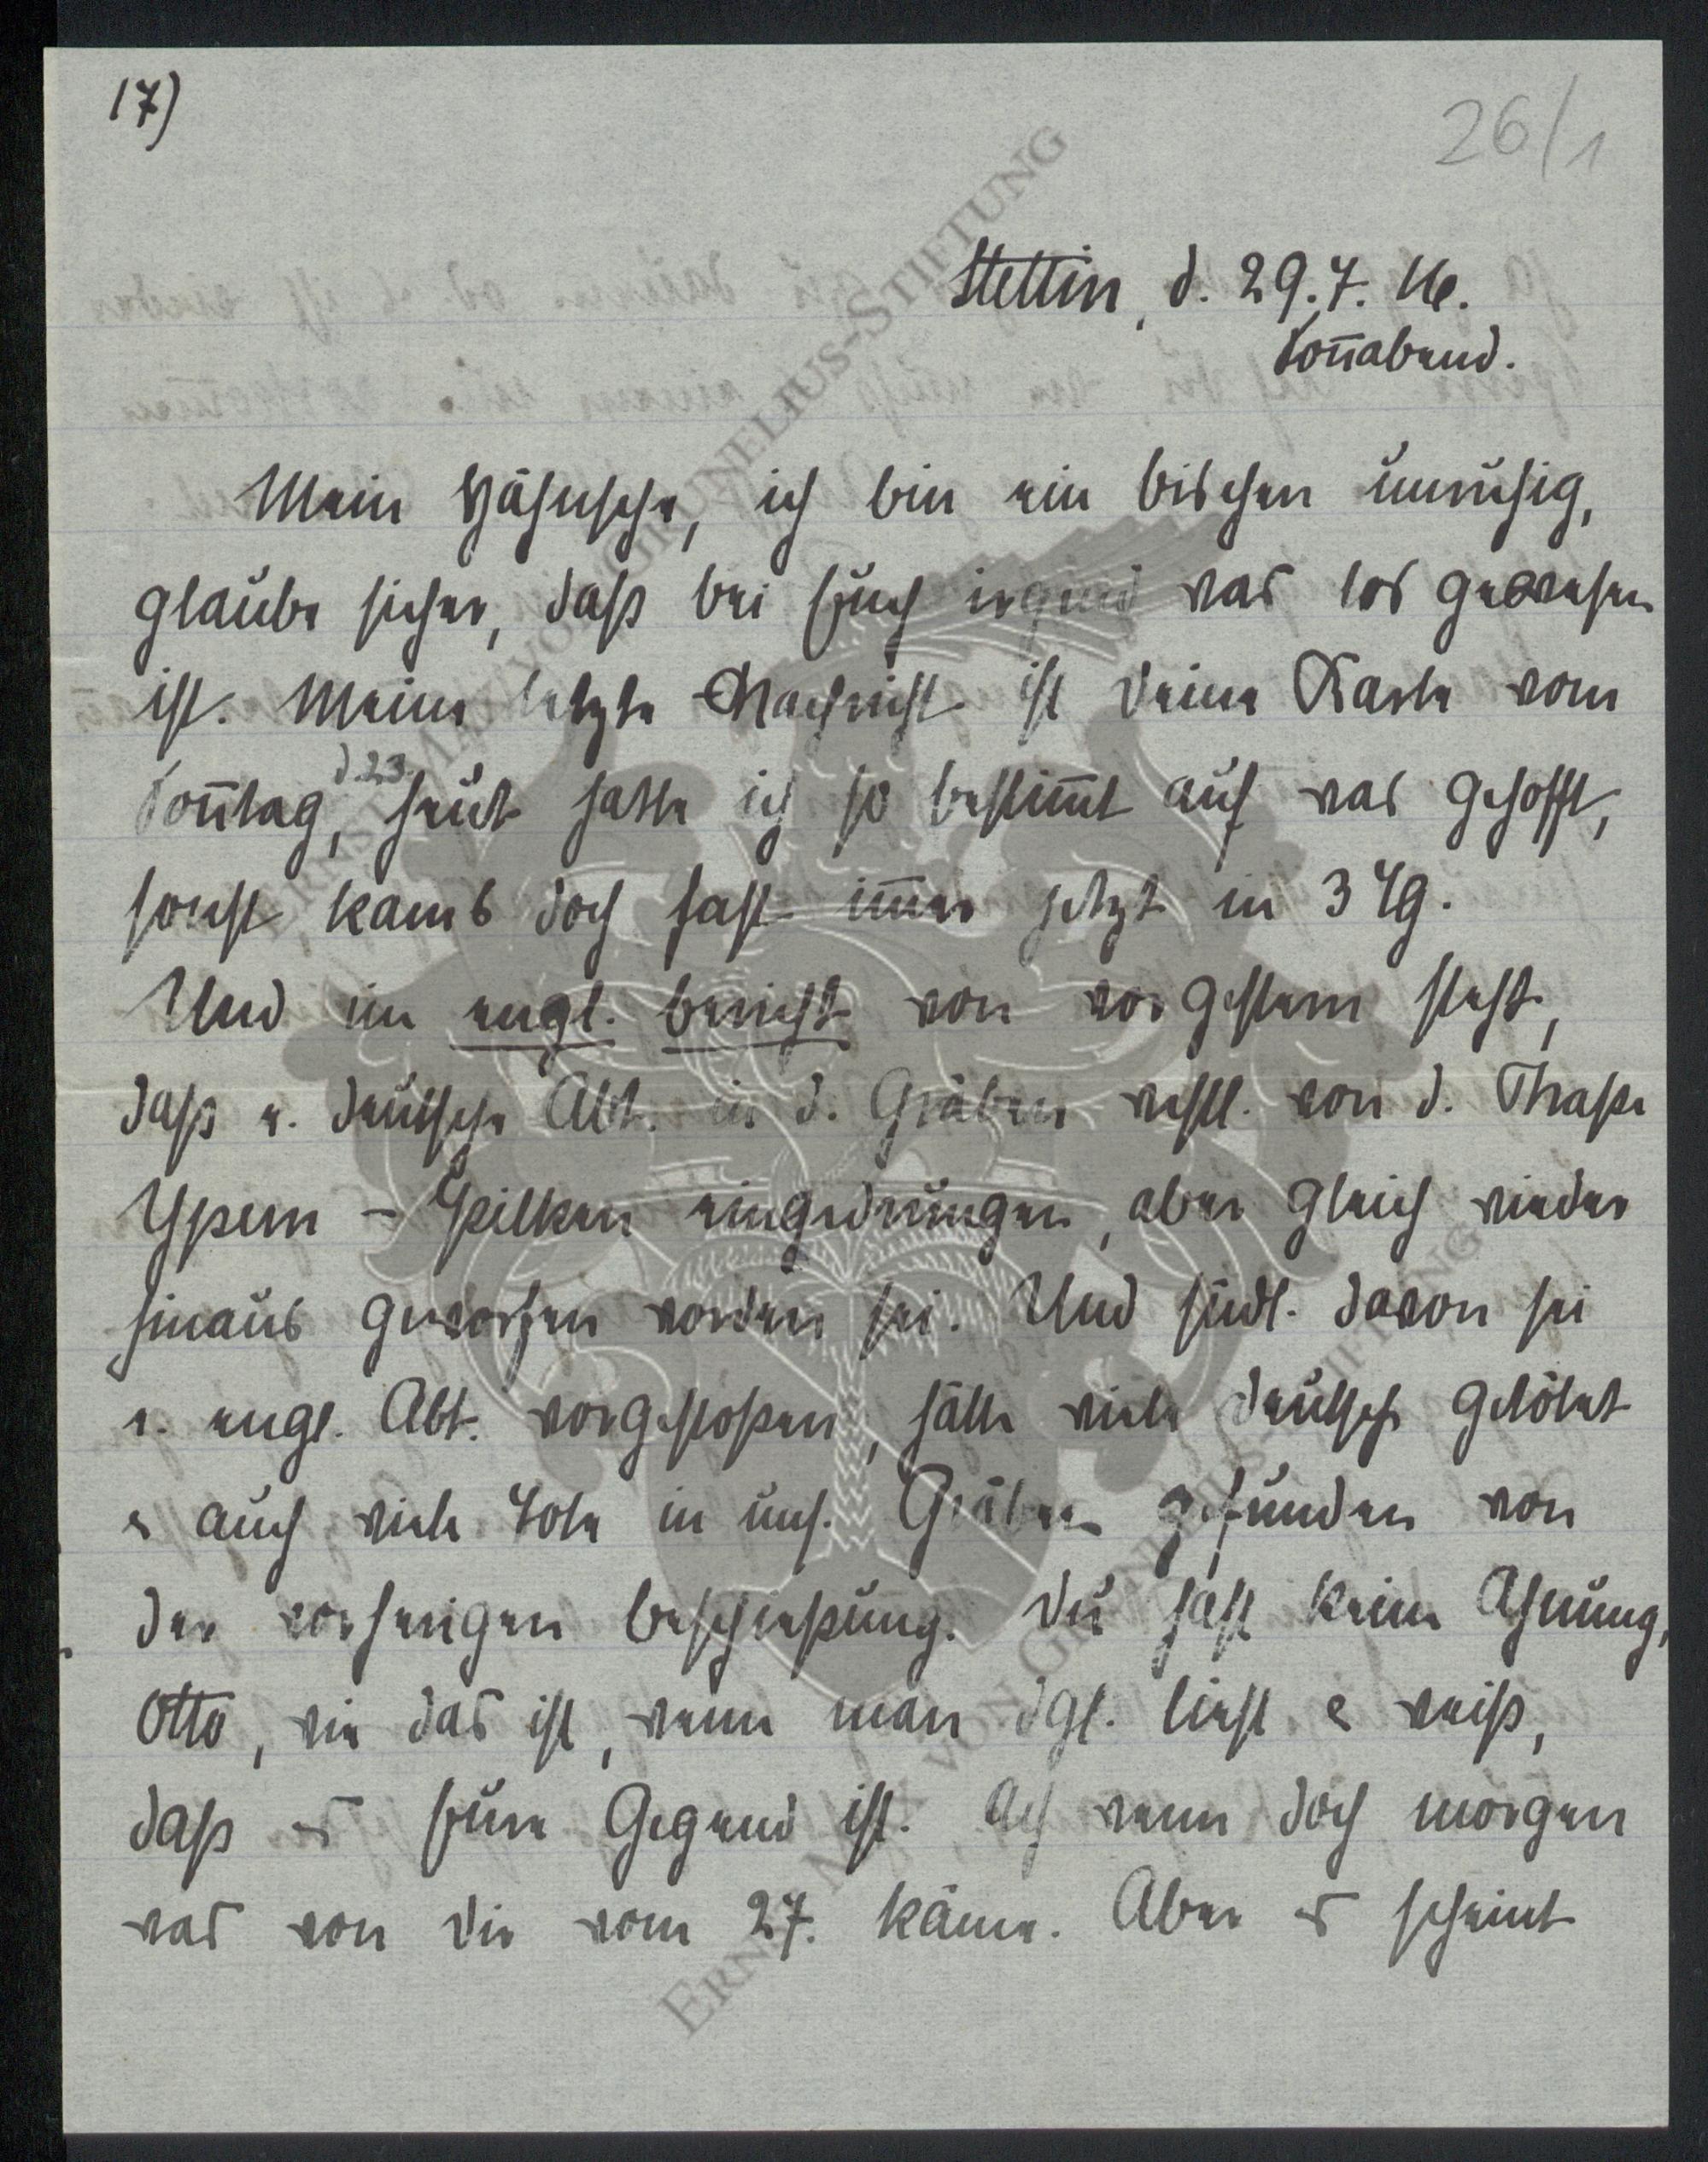 17)
26/1
Stettin, d. 29.7.16.
Sonnabend.
Mein Hähnsche, ich bin ein bischen unruhig,
glaube sicher, daß bei Euch irgend was los gewesen
ist. Meine letzte Nachricht ist Deine Karte vom
Sonntag, d. 23. heut hatte ich so bestimmt auf was gehofft,
sonst kams doch fast immer jetzt in 3 Tg.
Und im engl. Bericht von vorgestern steht,
daß e. deutsche Abt. in d. Gräben westl. von d. Straße
Ypern - Pilkem eingedrungen, aber gleich wieder
hinaus geworfen worden sei. Und südl. davon sei
e. engl. Abt. vorgestoßen, hätte viele Deutsche getötet
& auch viele Tote in uns. Gräben gefunden von
der vorherigen Beschießung. Du hast keine Ahnung,
Otto, wie das ist, wenn man dgl. liest & weiß,
daß es Eure Gegend ist. Ach wenn doch morgen
was von Dir vom 27. käme. Aber es scheint
ERNST MAX VON GRUNELIUS-STIFTUNG
ERNST MAX VON GRUNELIUS-STIFTUNG